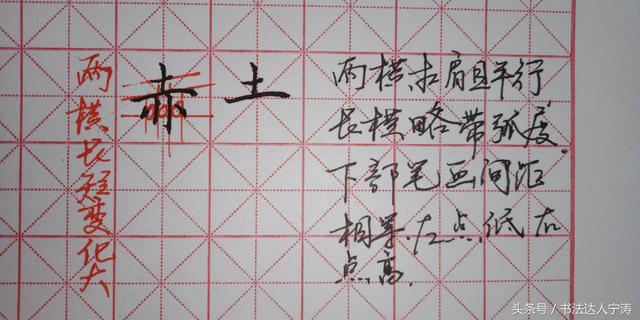 两横长短变化大
赤 土
两横求肩且平行
长横略带弧度。
下部笔画间距
相等.左点低右
点高.
头条号/书法达人宁涛